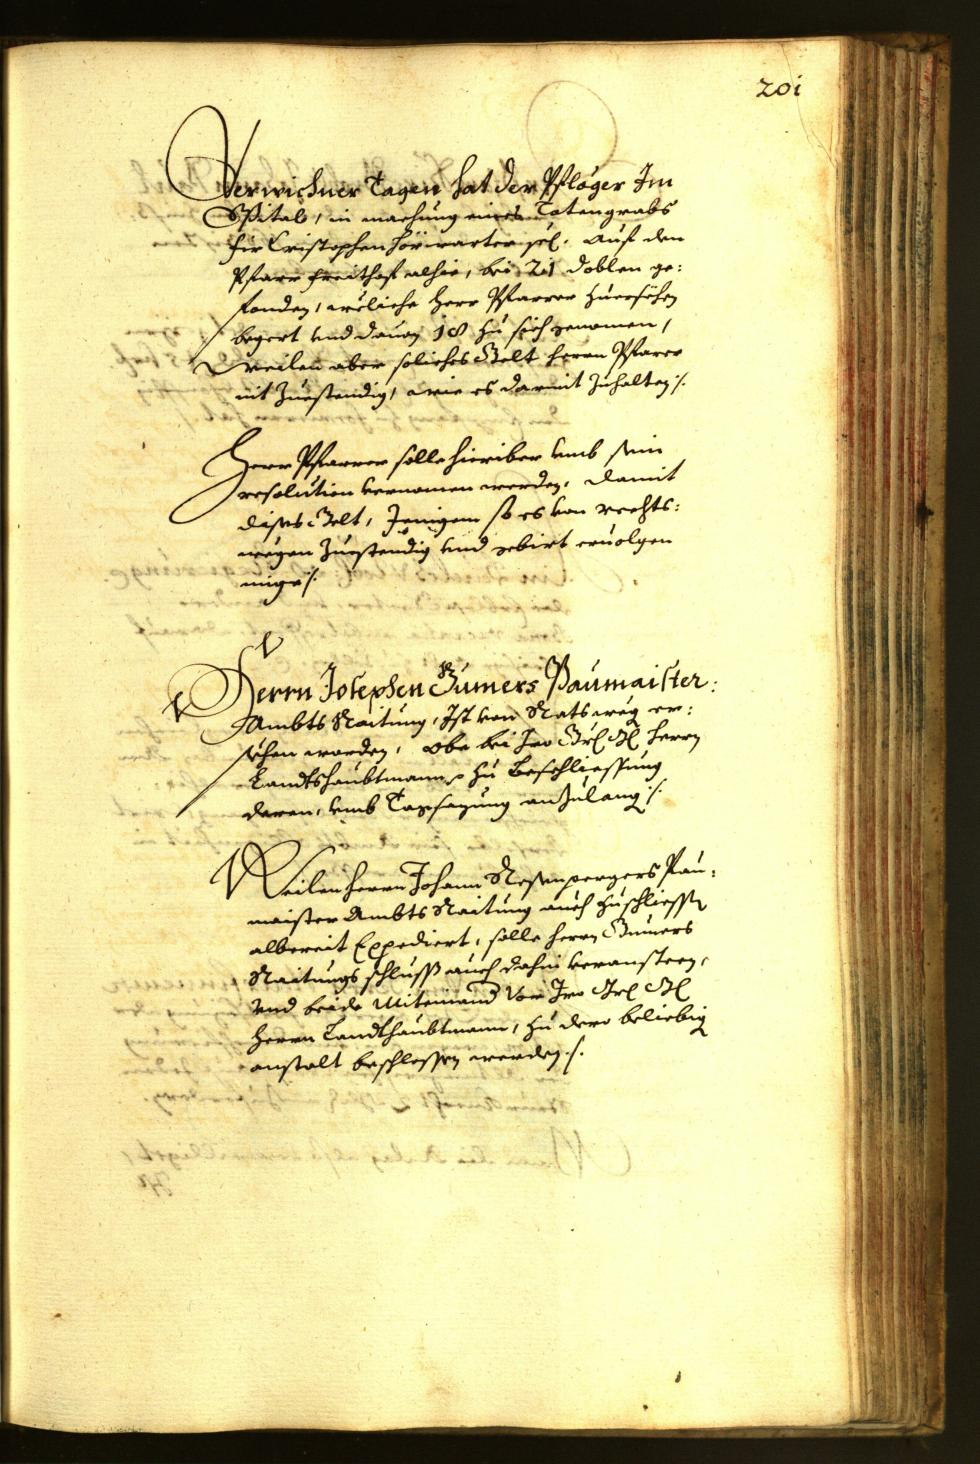 201
Verwichner Tagen hat der Pfleger Im
Spital, in machung eines Totengrabs
für Cristophen Hörwarter sel. auf den
Pfarr freithof alhie, bei 21 doblen ge:
fonden, weliche Herr Pfarrer zuersehen
begert und dauon 18 zu sich genomen,
Weilen aber soliches Gelt herrn Pfarrer
nit zuestendig, wie es darmit zuhalten /.
Herr Pfarrer solle hieriber umb sein
resolution vernomen werden, damit
dises Gelt, Jenigem so es von rechts:
wegen zuestendig und gebirt ervolgen
mige /.
Herrn Josephen Gumers Paumaister:
Ambts Raitung, Ist von Rats weg er:
sehen worden, obe bei Iro Gest Hl Herrn
Landtshaubtmann zu beschliessung
deren, umb Tagsazung anzulang /.
Weilen Herrn Johann Pau:
maister Ambts Raitung auch zuschliessen
albereit Expediert, solle herrn Gumers
Raitungs schluss auch dahin
und beide Miteinand vor Iro
Herrn Landtshaubtmann, zu dero beliebig
anstalt beschlossen werden /.